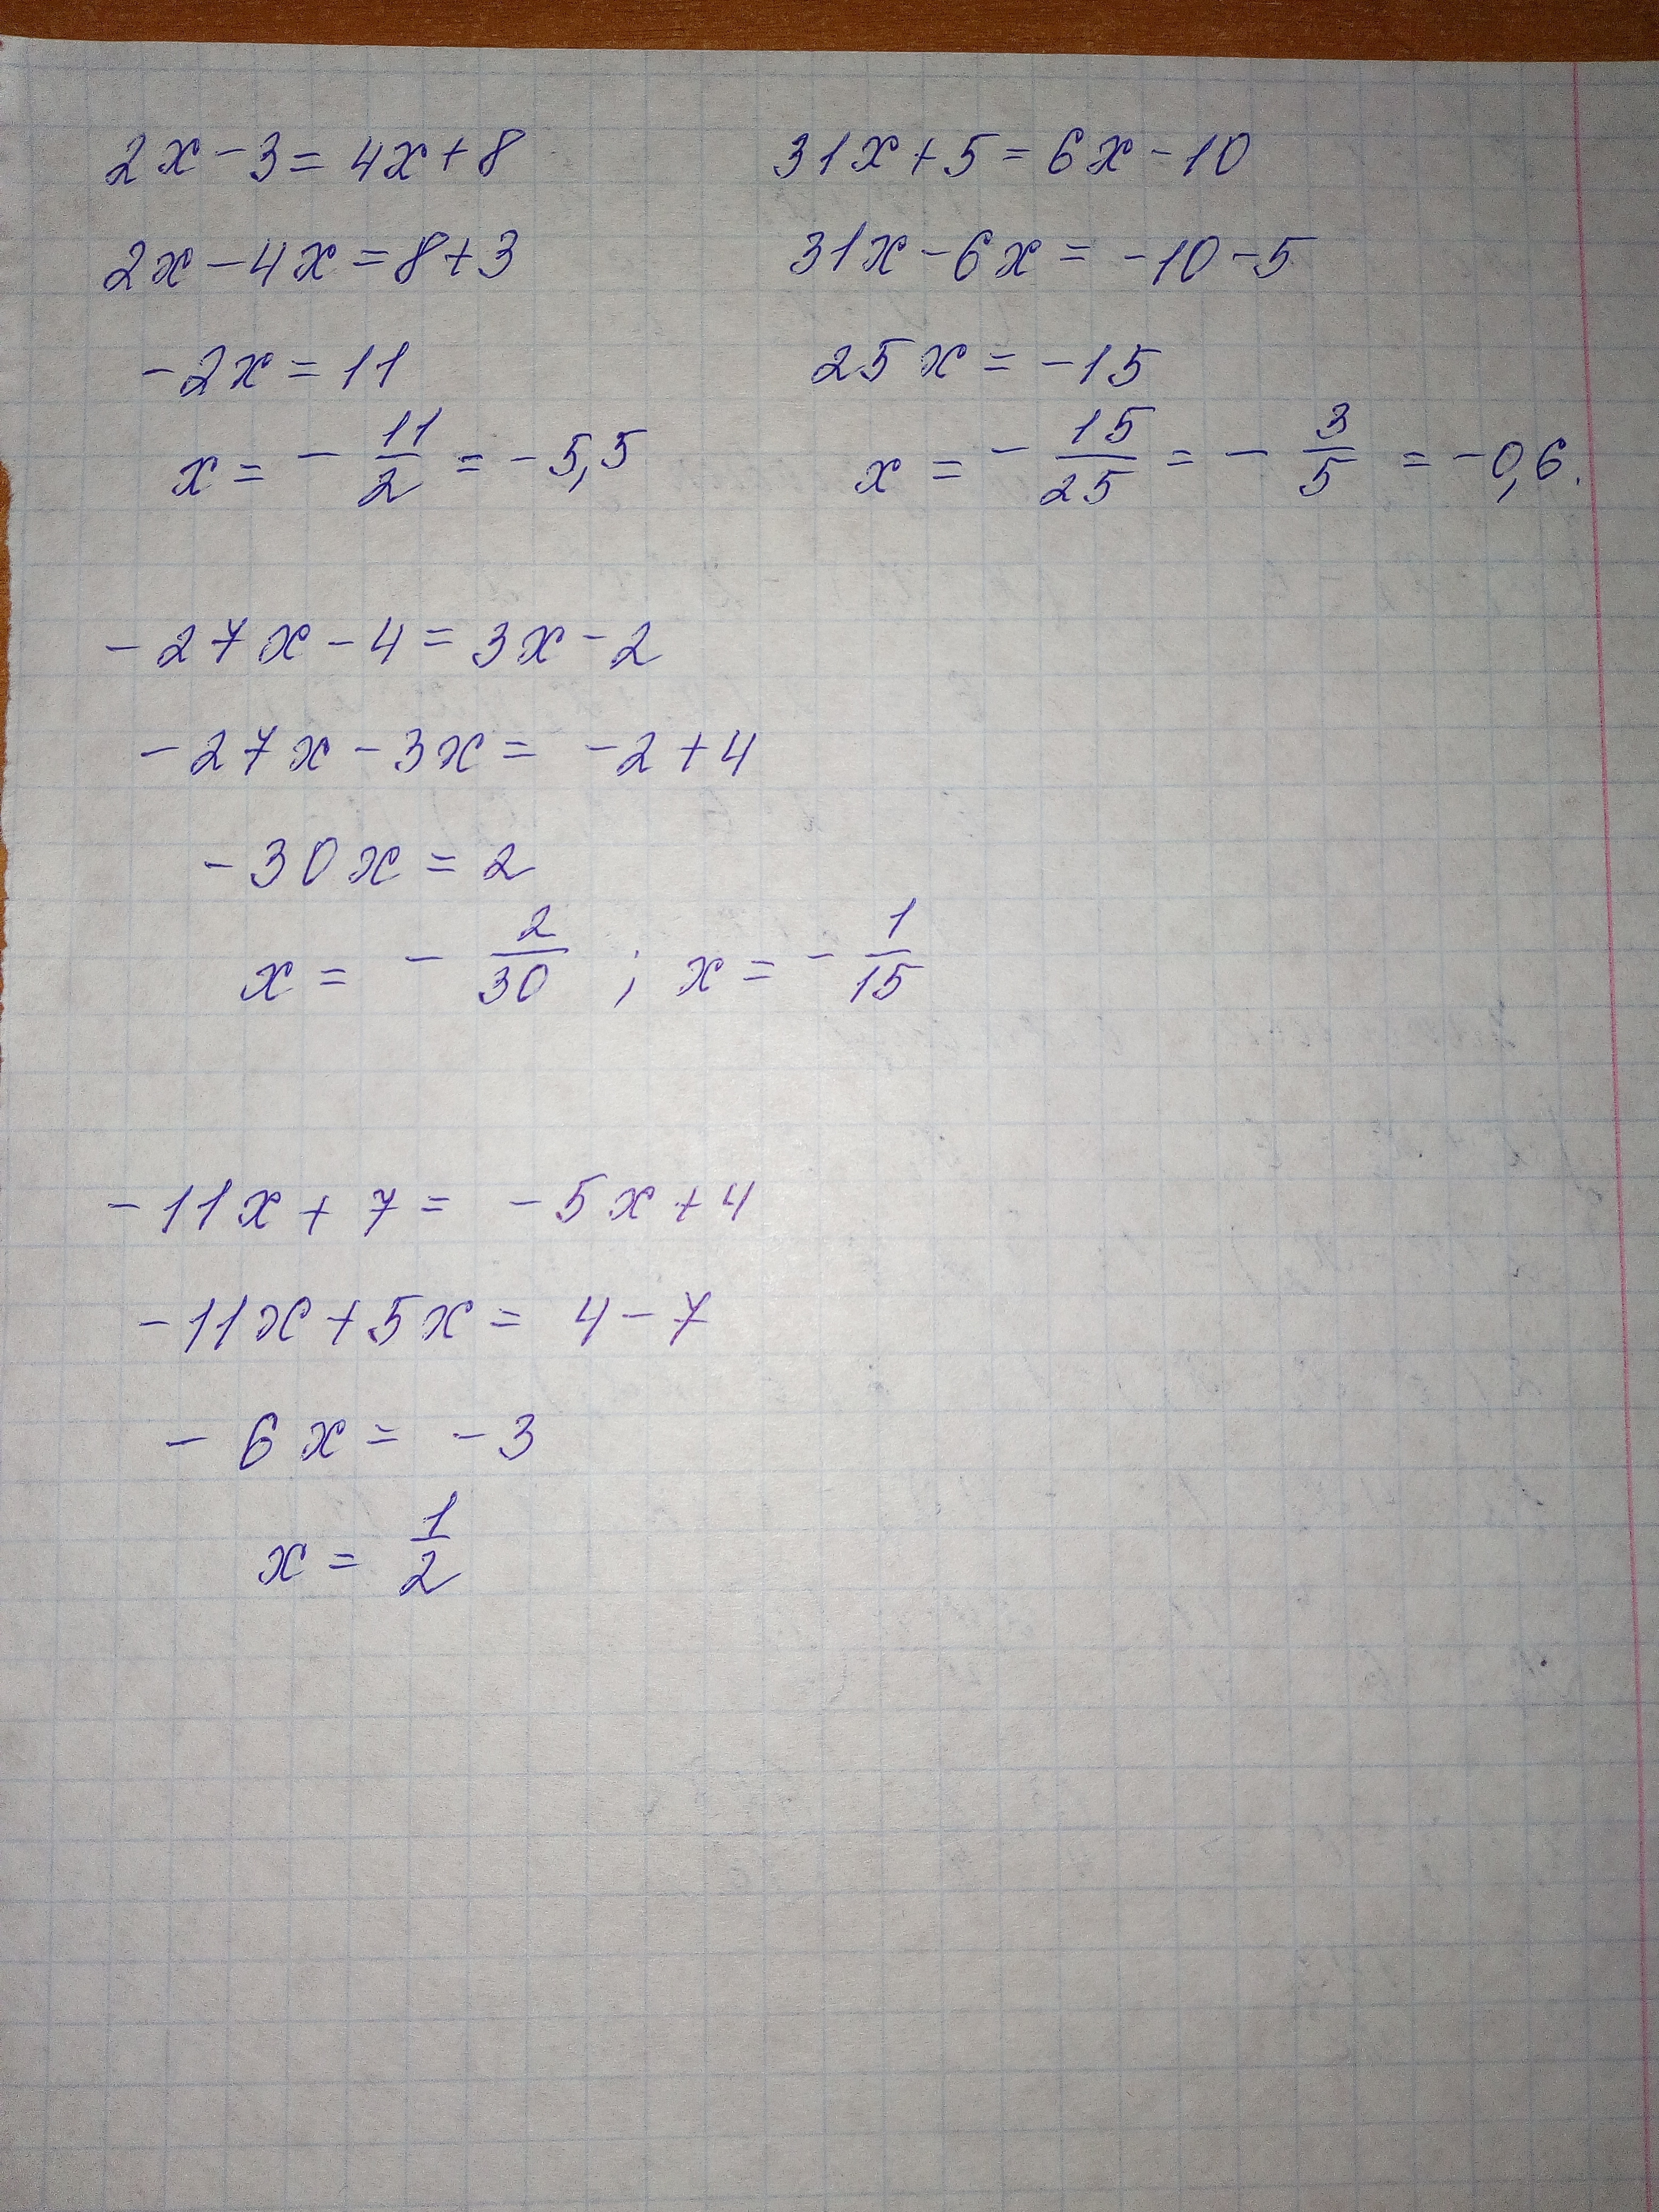 2x - 3 = 4x + 8
2x - 4x = 8 + 3
-2x = 11
x = - 11/2 = -5,5
31x + 5 = 6x - 10
31x - 6x = -10 - 5
25x = -15
x = - 15/25 = - 3/5 = -0,6.
-27x - 4 = 3x - 2
-27x - 3x = -2 + 4
-30x = 2
x = - 2/30 ; x = - 1/15
-11x + 7 = -5x + 4
-11x + 5x = 4 - 7
-6x = -3
x = 1/2